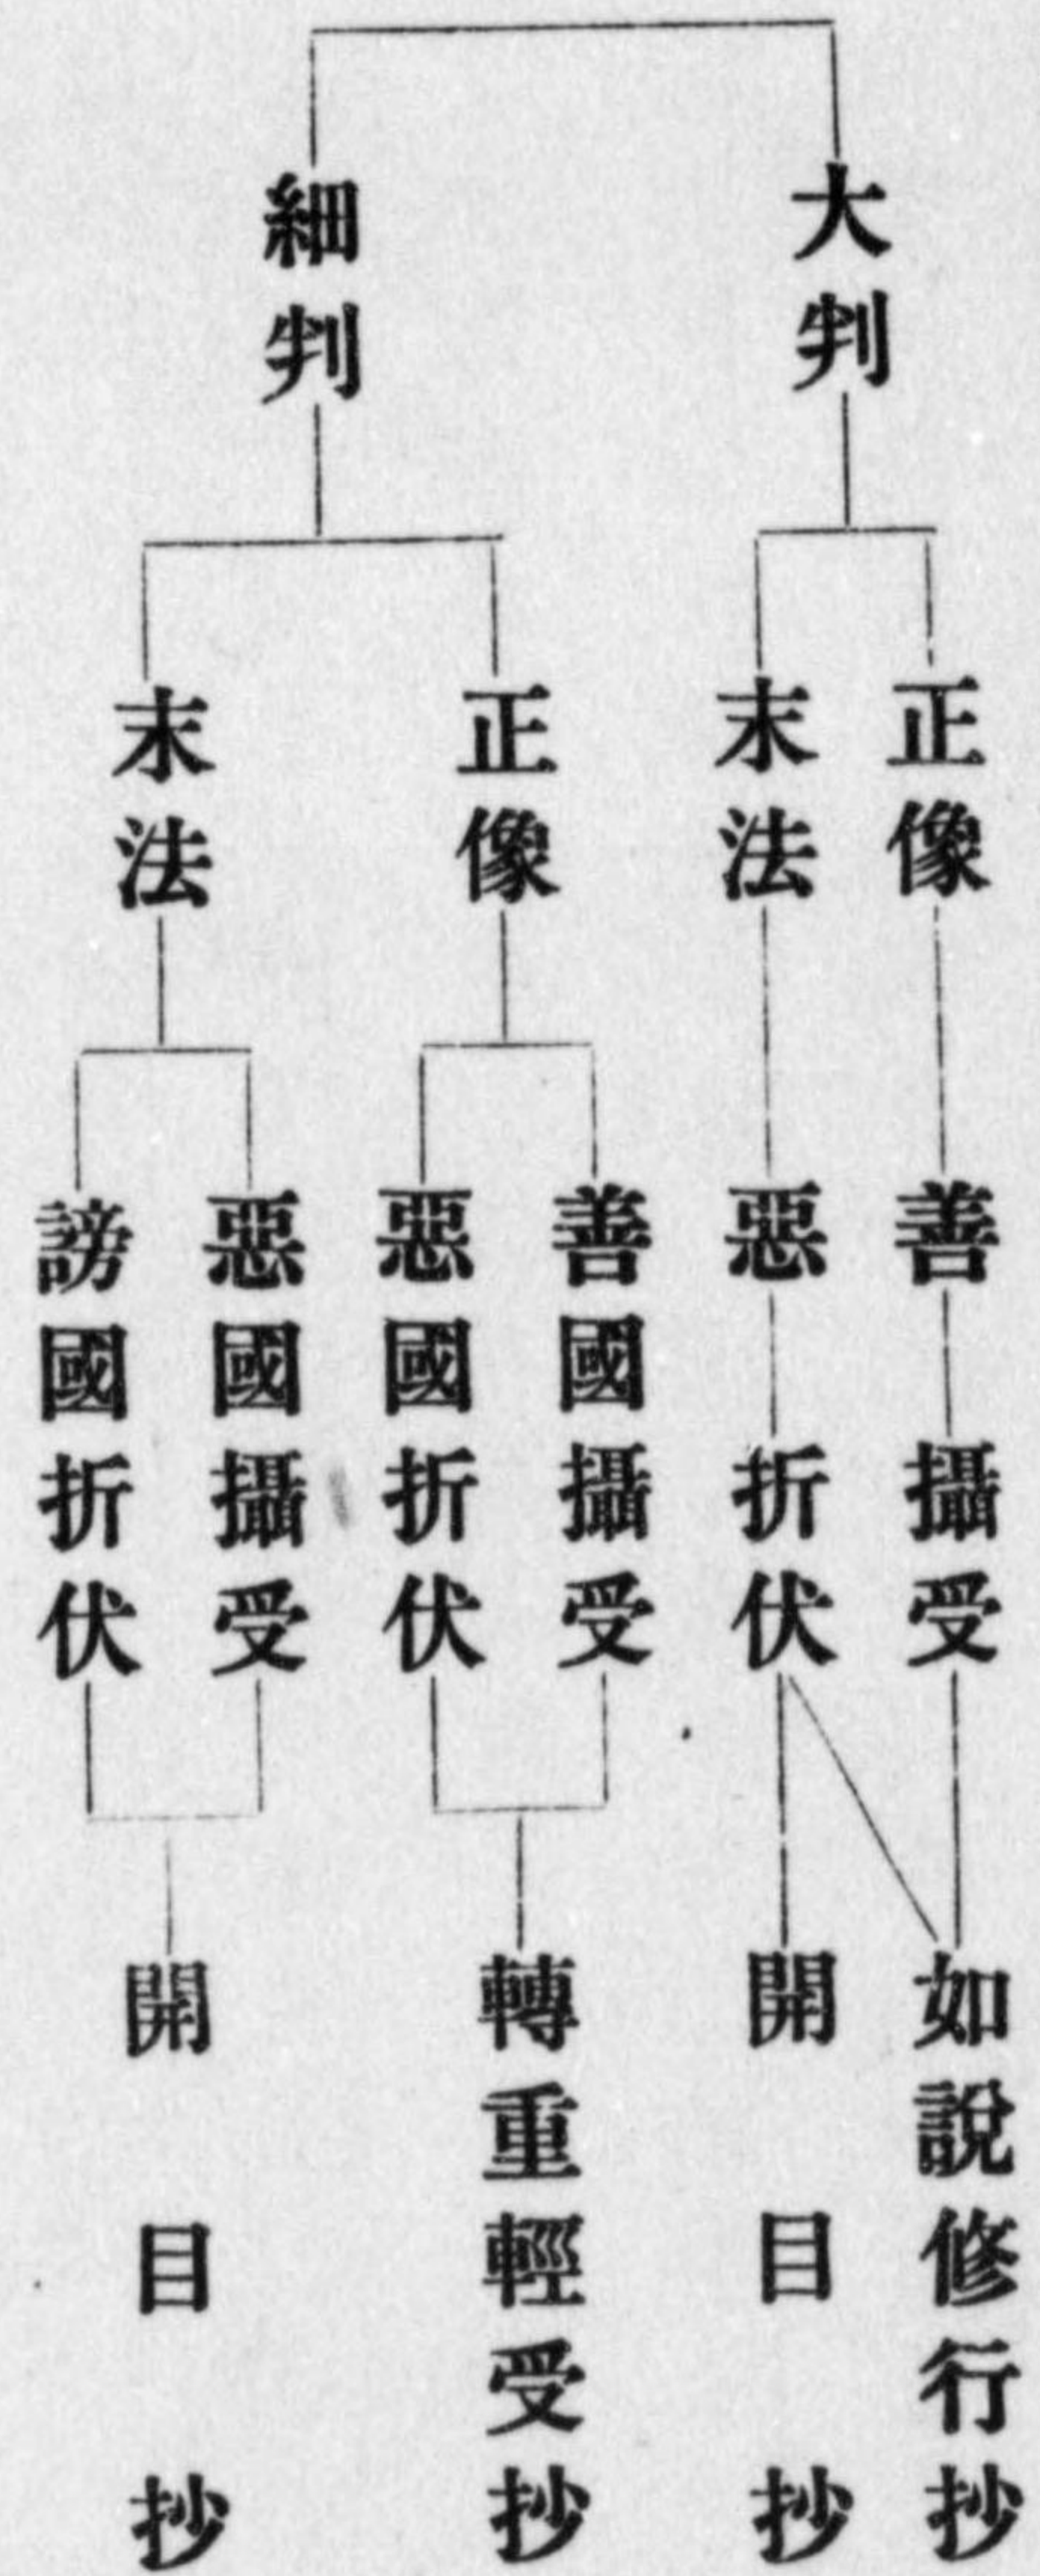 大判
正像
善
攝受
如說修行抄
末法
惡
折伏
開目抄
細判
正像
善國攝受
惡國折伏
轉重輕受抄
末法
惡國攝受
謗國折伏
開目抄